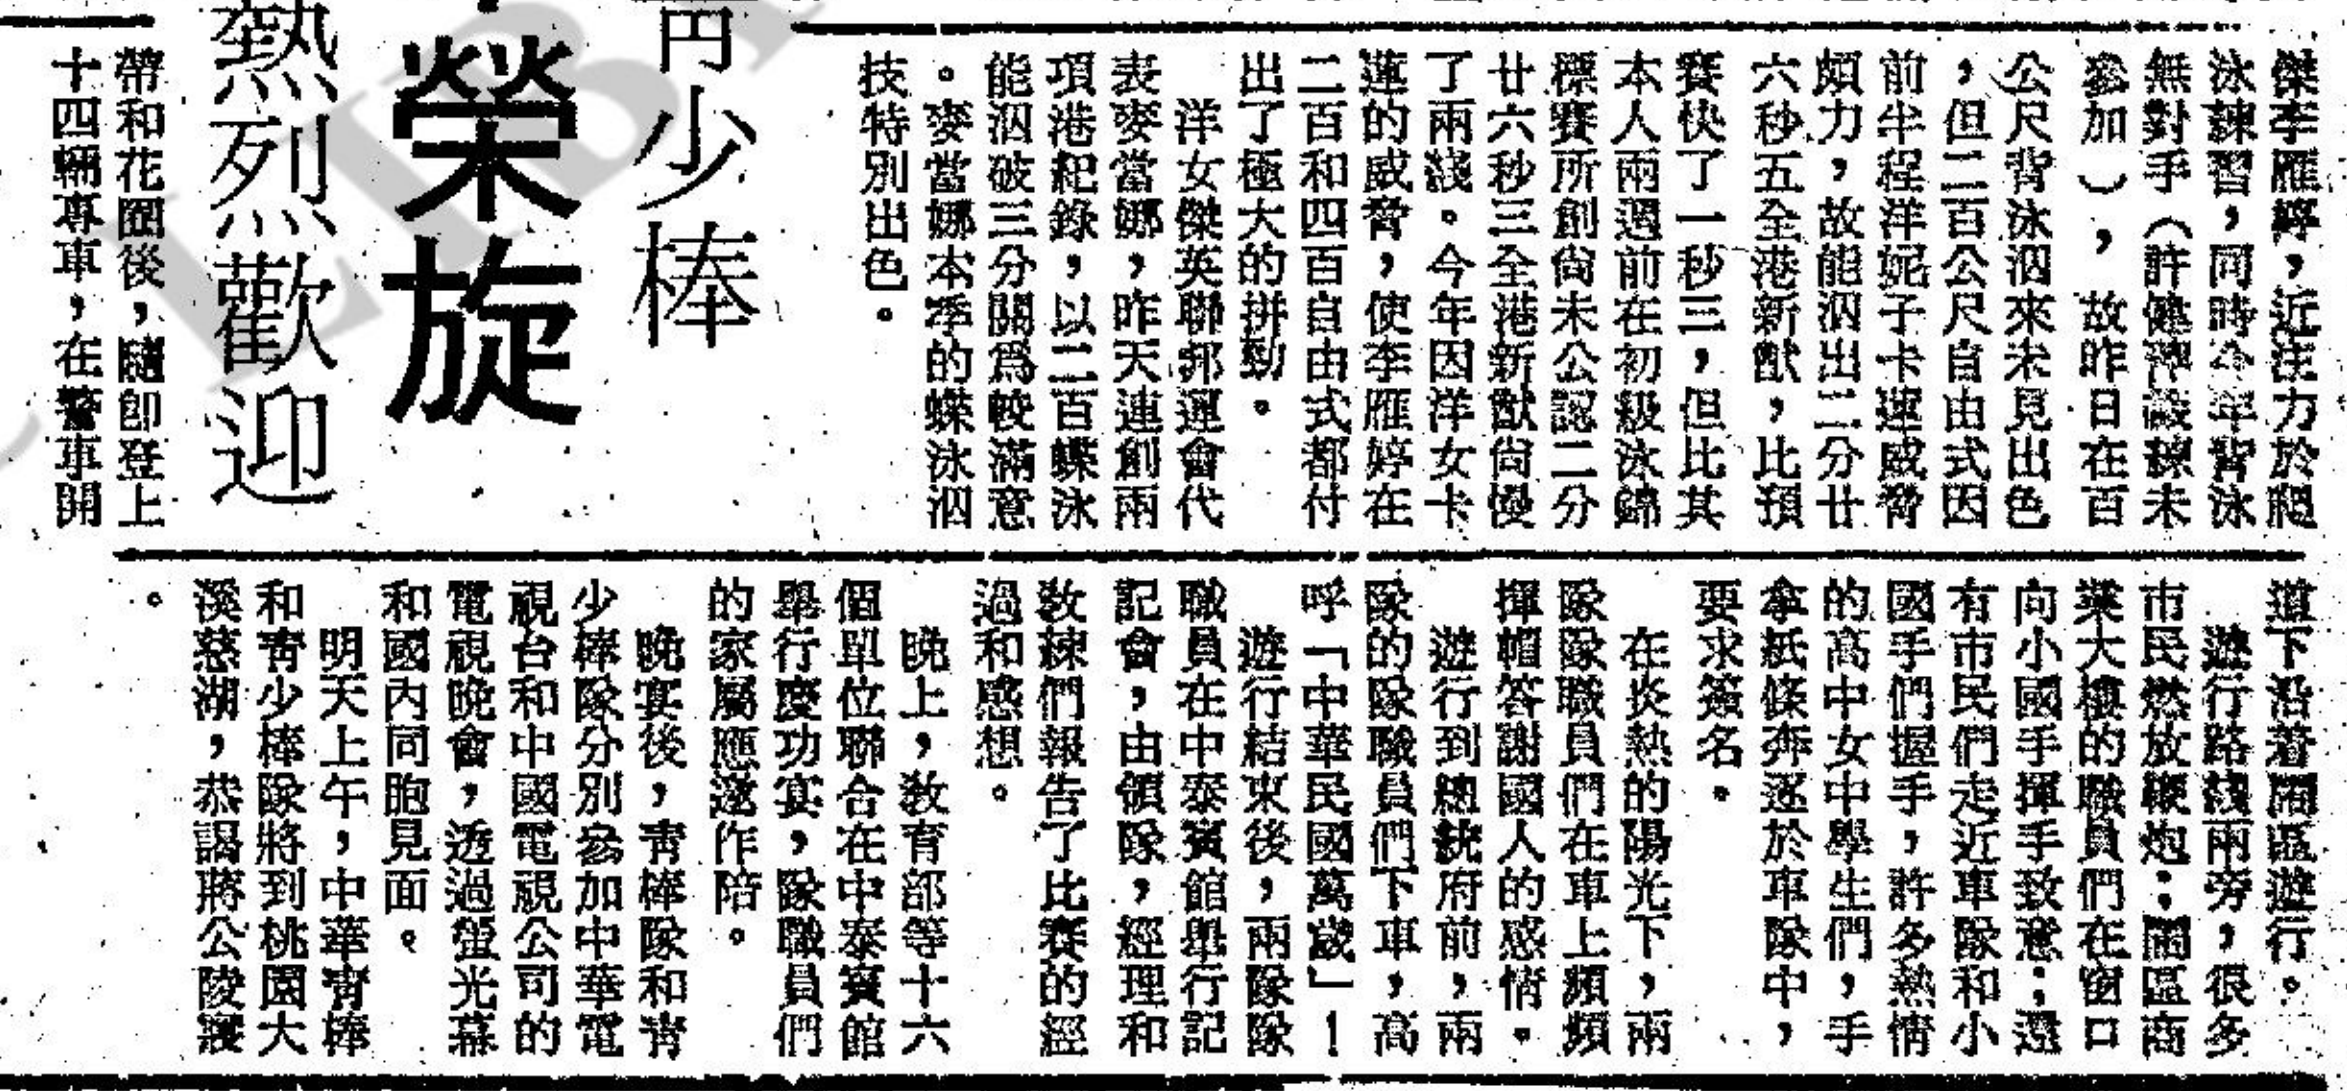 傑李雁婷，近注力於捷
泳練習，同時今年背泳
無對手（許健萍議練未
參加），故昨日在百
公尺背泳泅來未見出色
，但二百公尺自由式因
前半程洋妮子卡蓮威脅
頗力，故能泅出二分廿
六秒五全港新猷，比預
賽快了一秒三，但比其
本人兩週前在初級泳錦
標賽所創尙未公認二分
廿六秒三全港新猷尙慢
了兩綫。今年因洋女卡
蓮的威脅，使李雁婷在
二百和四百自由式都付
出了極大的拼勁。
洋女傑英聯邦運會代
表麥當娜，昨天連創兩
項港紀錄，以二百蝶泳
能泅破三分關爲較滿意
。麥當娜本季的蝶泳泅
技特別出色。
靑少棒
榮旋
熱烈歡迎
帶和花圈後，隨卽登上
十四輛專車，在警車開
道下沿着鬧區遊行。
遊行路綫兩旁，很多
市民燃放鞭炮；鬧區商
業大樓的職員們在窗口
向小國手揮手致意；還
有市民們走近車隊和小
國手們握手，許多熱情
的高中女中學生們，手
拿紙條奔逐於車隊中，
要求簽名。
在炎熱的陽光下，兩
隊隊職員們在車上頻頻
揮帽答謝國人的感情。
遊行到總統府前，兩
隊的隊職員們下車，高
呼「中華民國萬歲」！
遊行結束後，兩隊隊
職員在中泰賓館舉行記
記會，由領隊，經理和
敎練們報告了比賽的經
過和感想。
晚上，敎育部等十六
個單位聯合在中泰賓館
舉行慶功宴，隊職員們
的家屬應邀作陪。
晚宴後，靑棒隊和靑
少棒隊分別參加中華電
視台和中國電視公司的
電視晚會，透過螢光幕
和國內同胞見面。
明天上午，中華靑棒
和靑少棒隊將到桃園大
溪慈湖，恭謁蔣公陵寢
。